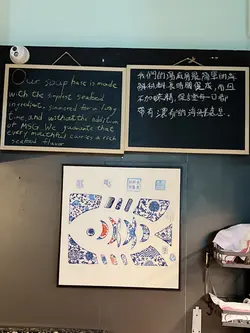 Our soup base is made
with the simplest seafood
ingredient, simmered for a long
time, and without the addition
of MSG. We guarantee that
every mouthful carries a rich
seafood flavor.
我們的湯底用最簡單的海
鮮材料長時間慢熬，而且
不加味精，保證每一口都
帶有濃郁的海鮮味道。